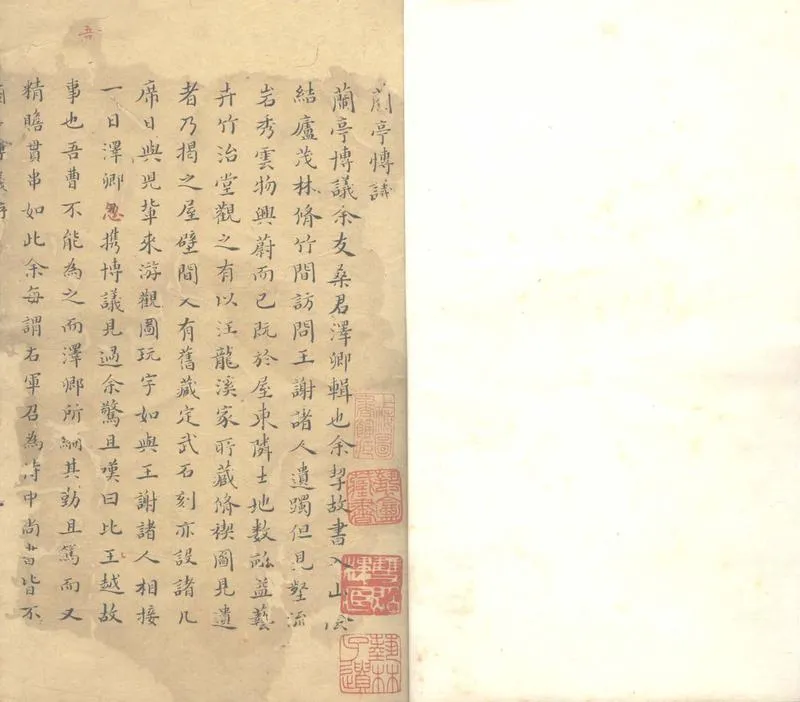 蘭亭愽議
蘭亭博議余友桑君澤卿輯也余挈故書入山陰
結廬茂林脩竹間訪問王謝諸人遺躅但見壑流
岩秀雲物興蔚而已既於屋東隣士地數畝益藝
卉竹治堂觀之有以汪龍溪家所藏脩禊圖見遺
者乃揭之屋壁間又有舊藏定武石刻亦設諸几
席日與児輩來游觀圖玩字如與王謝諸人相接
一日澤卿忽携博議見過余驚且嘆曰比王越故
事也吾曹不能為之而澤卿所紬其勤且篤而又
精贍貫串如此余每謂右軍召為侍中尚書皆不
吾